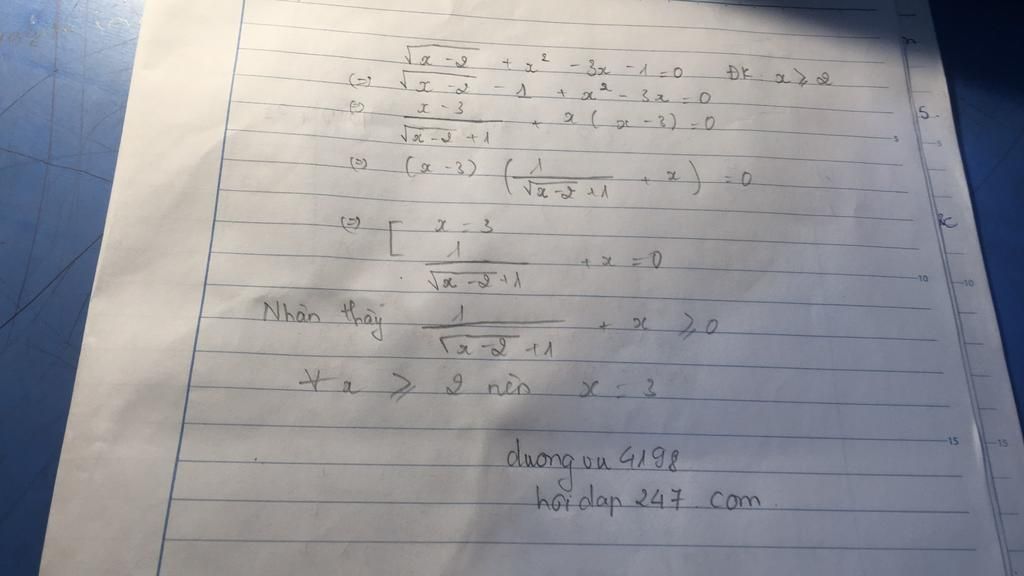 √x-2 + x² - 3x - 1 = 0 ĐK: x ⩾ 2
(=) √x-2 - 1 + x² - 3x = 0
(=) x - 3 / √x-2 + 1 + x ( x - 3) = 0
(=) (x - 3) ( 1 / √x-2 + 1 + x ) = 0
(=) [ x = 3
1 / √x-2 + 1 + x = 0
Nhận thấy 1 / √x-2 + 1 + x ⩾ 0
∀ x ⩾ 2 nên x = 3
duong vu 4198
hoi dap 247 . com
5
5
10
10
15
15